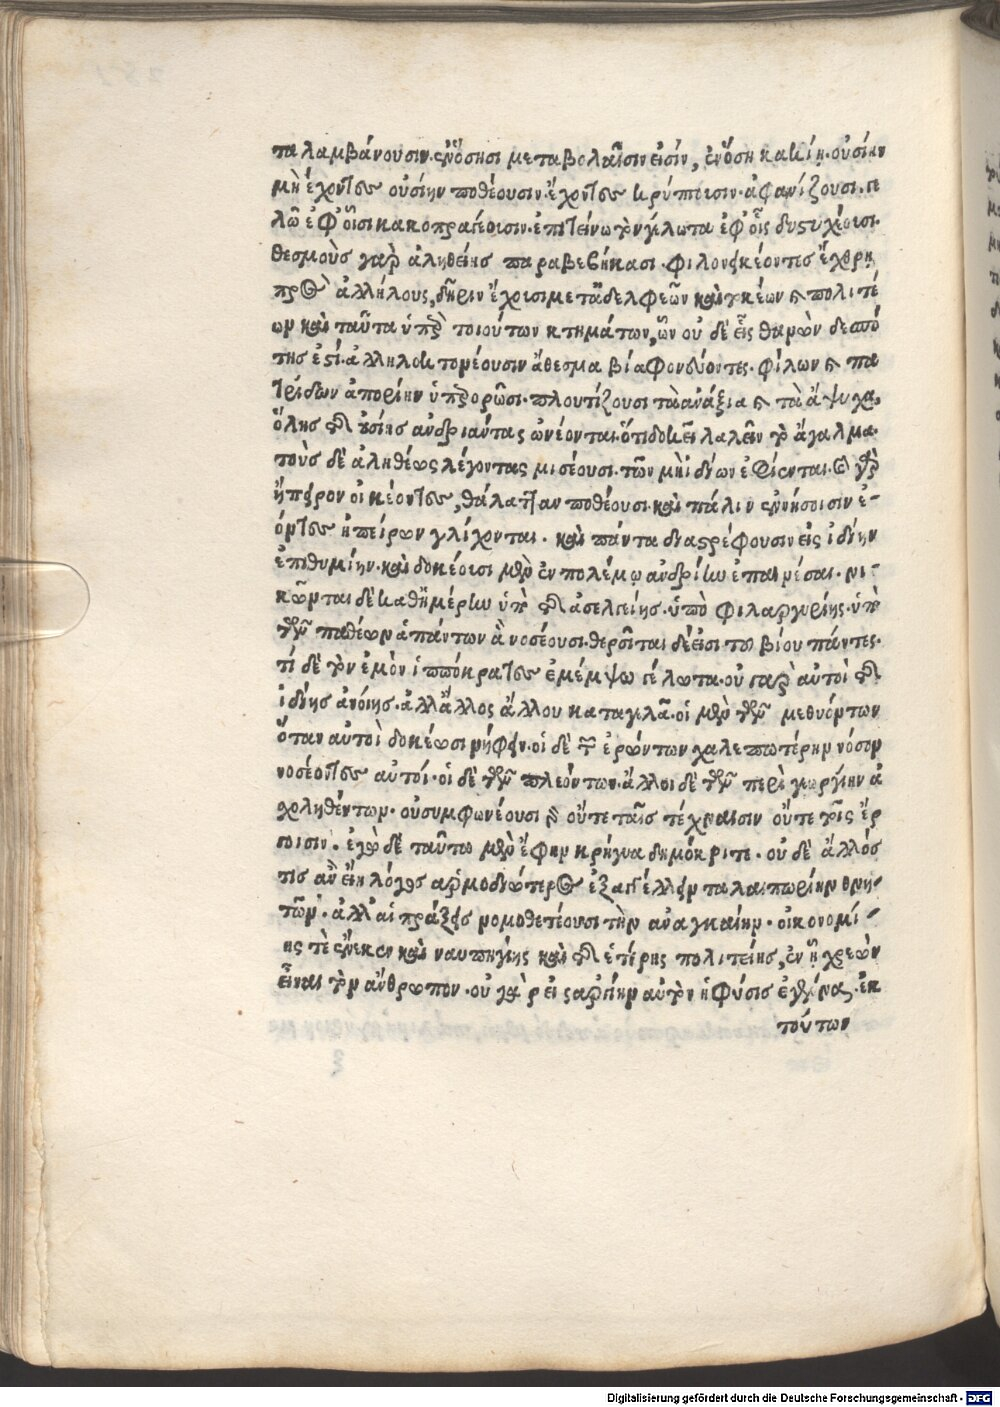 τα λαμβάνουσιν. ἐν ὅσῃσι μεταβολαῖσιν εἰσίν, ἐν ὅσῃ κακίῃ. οὐσίην
μὴ ἔχοντες οὐσίην ποθέουσιν. ἔχοντες κρύπτουσιν. ἀφανίζουσι. γε
λῶ ἐφ' οἷσι κακοπραγέουσιν. ἐπιτείνω τὸν γέλωτα ἐφ' οἷς δυστυχέουσι.
θεσμοὺς γὰρ ἀληθείης παραβεβήκασι. φιλονεικέοντες ἔχθρῃ
πρὸς ἀλλήλους, δῆριν ἔχουσι μετὰ ἀδελφεῶν καὶ τοκέων καὶ πολιτέ
ων καὶ ταῦτα ὑπὲρ τοιούτων κτημάτων, ὧν οὐδὲ εἷς θανὼν δεσπό
της ἐστί. ἀλληλοκτονέουσιν ἄθεσμα βιαφονεύοντες. φίλων καὶ πα
τρίδων ἀπορίην ὑπερορῶσι. πλουτίζουσι τὰ ἀνάξια καὶ τὰ ἄψυχα,
ὅλης τῆς οὐσίης ἀνδριάντας ὠνέονται. ὅτι δοκέει λαλεῖν τὸ ἄγαλμα.
τοὺς δὲ ἀληθέως λέγοντας μισέουσι. τῶν μὴ ἰδίων ἐφίενται. καὶ γὰρ
ἤπειρον οἰκέοντες, θάλατταν ποθέουσι. καὶ πάλιν ἐν νήσοισιν ἐ-
όντες ἠπείρων γλίχονται. καὶ πάντα διαστρέφουσιν εἰς ἰδίην
ἐπιθυμίην. καὶ δοκέουσι μὲν ἐν πολέμῳ ἀνδρίην ἐπαινέσαι. νι-
κῶνται δὲ καθημέρην ὑπὸ τῆς ἀσελγείης. ὑπὸ φιλαργυρίης. ὑπὸ
τῶν παθέων ἁπάντων ἃ νοσέουσι. θερσῖται δέ εἰσι τοῦ βίου πάντες.
τί δὲ τὸν ἐμὸν ἱππόκρατες ἐμέμψω γέλωτα. οὐ γὰρ αὐτοὶ τῆς
ἰδίης ἀνοίης. ἀλλ' ἄλλος ἄλλου καταγελᾶ. οἱ μὲν τῶν μεθυόντων
ὅταν αὐτοὶ δοκέωσι νήφειν. οἱ δὲ τῶν ἐρώντων χαλεπωτέρην νόσον
νοσέοντες αὐτοί. οἱ δὲ τῶν πλεόντων. ἄλλοι δὲ τῶν περὶ γεωργίην ἀ
χοληθέντων. οὐ συμφωνέουσι γὰρ οὔτε ταῖς τέχναισιν οὔτε τοῖς ἔρ
γοισιν. ἐγὼ δὲ ταῦτα μὲν ἔφην κρήγυα δημόκριτε. οὐδὲ ἄλλός
τις ἂν εἴη λόγος ἁρμοδιώτερος ἐξαγγέλλειν ταλαιπωρίην θνη-
τῶν. ἀλλ' αἱ πράξεις νομοθετέουσι τὴν ἀναγκαίην. οἰκονομί-
ης τὲ ἕνεκεν καὶ ναυπηγίης καὶ τῆς ἑτέρης πολιτείης, ἐν ᾗ χρεὼν
εἶναι τὸν ἄνθρωπον. οὐ γὰρ εἰς ἀργίην αὐτὸν ἡ φύσις ἐγέννησε. ἐκ
τούτων